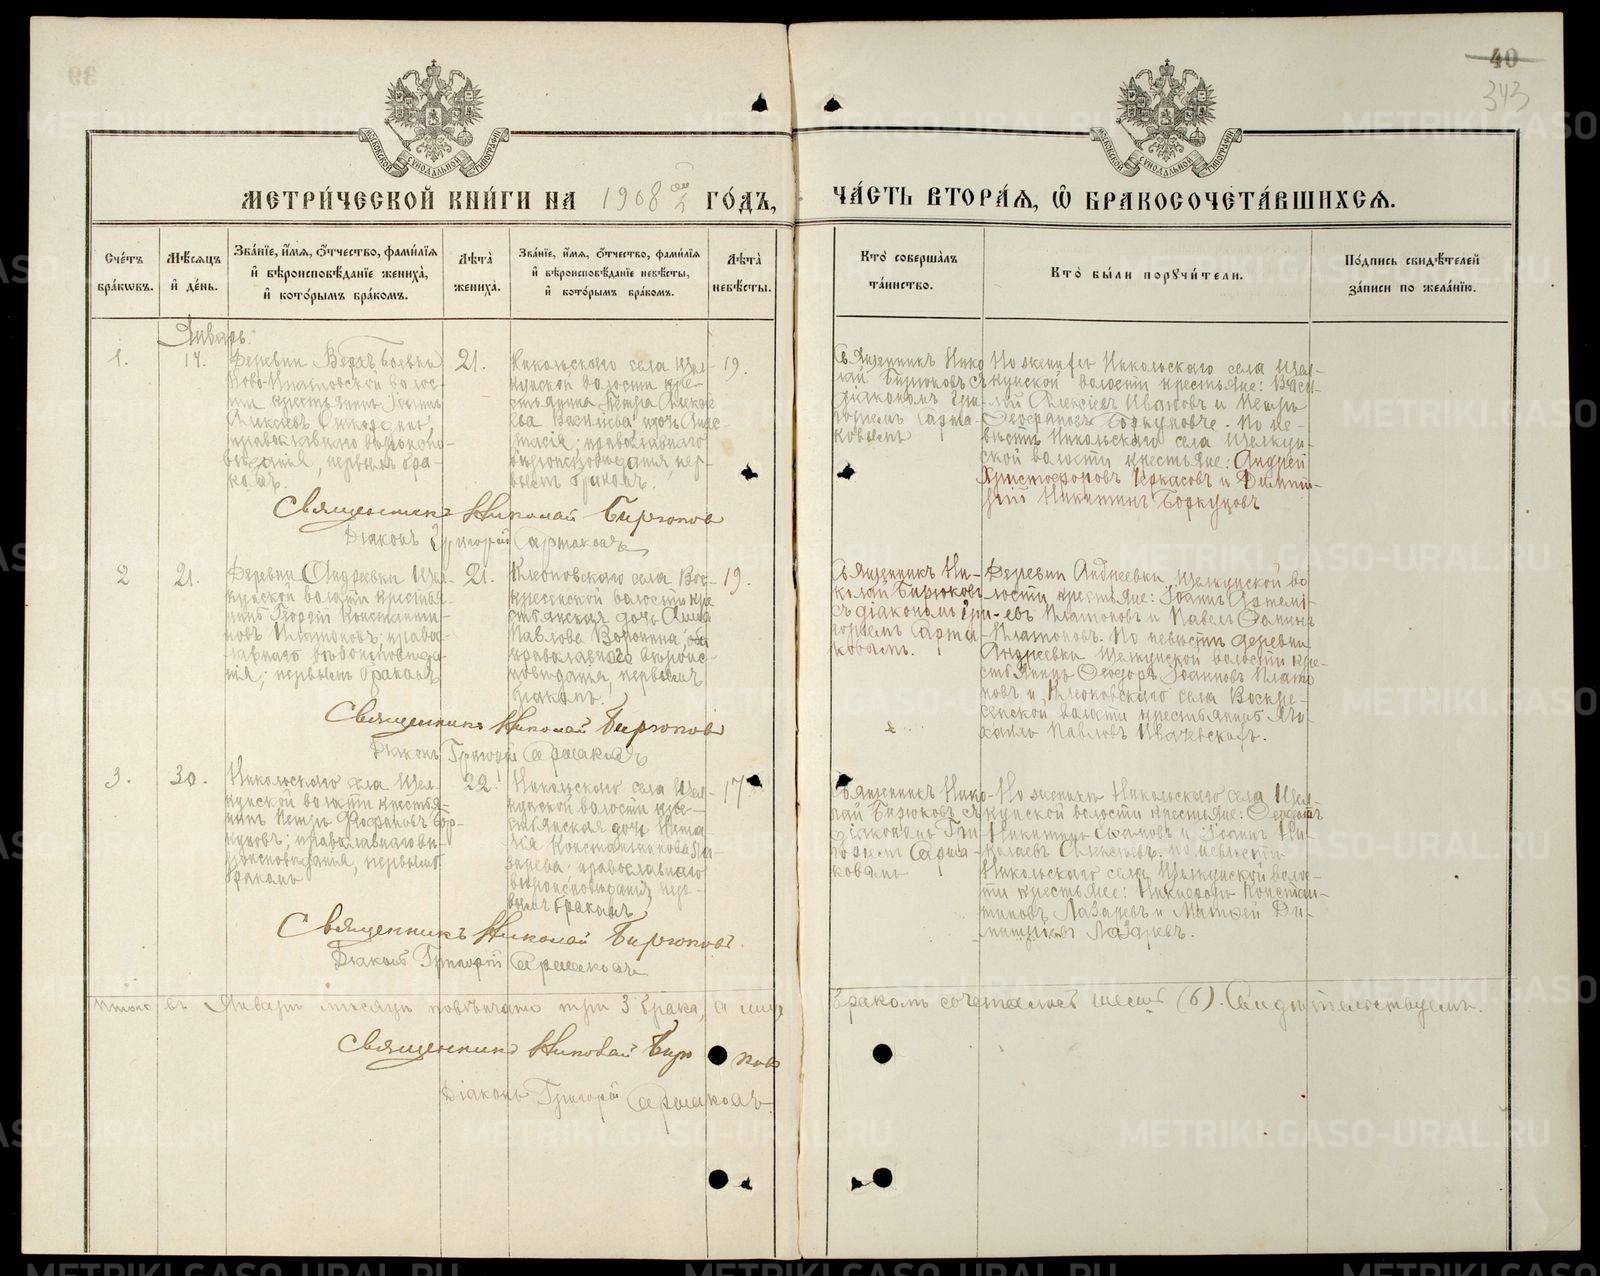 40
343
МЕТРИ́ЧЕСКОЙ КНИ́ГИ НА 1908 ГО́ДЪ,
ЧА́СТЬ ВТОРА́Я, Ѿ БРАКОСОЧЕТА́ВШИХСЯ.
Сче́тъ бра́кѡвъ.
Мѣ́сяцъ и҆ де́нь.
Зва́нїе, и҆́мя, ѻ҆́тчество, фами́лїя и҆ вѣроисповѣ́данїе жениха̀, и҆ кото́рымъ бра́комъ.
Лѣта̀ жениха̀.
Зва́нїе, и҆́мя, ѻ҆́тчество, фами́лїя и҆ вѣроисповѣ́данїе невѣ́сты, и҆ кото́рымъ бра́комъ.
Лѣта̀ невѣ́сты.
Кто̀ соверша́лъ та́инство.
Кто̀ бы́ли порꙋчи́тели.
По́дпись свидѣ́телей за́писи по жела́нїю.
Январь.
1.
17.
Деревни
волос-
ти крестьянинъ
Алексѣевъ
православнаго вѣроиспо-
вѣданія, первымъ бра-
комъ.
21.
Никольскаго села Щел-
кунской волости кре-
стьянина Петра Алексѣ-
ева дочь Анас-
тасія; православнаго
вѣроисповѣданія, пер-
вымъ бракомъ.
19.
Священникъ Нико-
лай Бирюковъ съ
діакономъ Гри-
горіемъ Сарта-
ковымъ
По женихѣ Никольскаго села Щел-
кунской волости крестьяне: Васи-
лій Алексѣевъ Ивановъ и Петръ
По не-
вѣстѣ Никольскаго села Щелкун-
ской волости крестьяне: Андрей
Христофоровъ Черкасовъ и Димит-
рій Никитинъ Боркуновъ
Священникъ Николай Бирюковъ
Діаконъ Григорій Сартаковъ
2
21.
Деревни Андреевки Щел-
кунской волости крестья-
нинъ Георгій Константи-
новъ Платоновъ; право-
славнаго вѣроисповѣда-
нія; первымъ бракомъ
21.
Клеоповскаго села Вос-
кресенской волости кре-
стьянская дочь Анна
Павлова Воронина;
православнаго вѣроис-
повѣданія, первымъ
бракомъ.
19.
Священникъ Ни-
колай Бирюковъ
съ діакономъ Гри-
горіемъ Сарта-
ковымъ.
Деревни Андреевки Щелкунской во-
лости крестьяне: Іоаннъ Артемі-
евъ Платоновъ и Павелъ Фоминъ
Платоновъ. По невѣстѣ деревни
Андреевки Щелкунской волости кре-
стьянинъ Ѳеодоръ Іоанновъ Плато-
новъ и Клеоповскаго села Воскре-
сенской волости крестьянинъ Ми-
хаилъ Павловъ
Священникъ Николай Бирюковъ
Діаконъ Григорій Сартаковъ
3.
30.
Никольскаго села Щел-
кунской волости крестья-
нинъ Петръ Бор-
куновъ; православнаго вѣ-
роисповѣданія, первымъ
бракомъ
22.
Никольскаго села Щел-
кунской волости кре-
стьянская дочь Ната-
лія Константинова Ла-
зарева; православнаго
вѣроисповѣданія, пер-
вымъ бракомъ
17
Священникъ Нико-
лай Бирюковъ съ
діакономъ Гри-
горіемъ Сарта-
ковымъ
По женихѣ Никольскаго села Щел-
кунской волости крестьяне:
Никитинъ и Іоаннъ Ни-
колаевъ Алексѣевъ. По невѣстѣ
Никольскаго села Щелкунской воло-
сти крестьяне: Никифоръ Констан-
тиновъ Лазаревъ и Матѳей Ди-
митріевъ Лазаревъ.
Священникъ Николай Бирюковъ.
Діаконъ Григорій Сартаковъ
Итого въ Январѣ мѣсяцѣ повѣнчано три 3 брака, а лицъ бракомъ сочеталось шесть (6). Свидѣтельствуемъ.
Священникъ Николай Бирюковъ
Діаконъ Григорій Сартаковъ
METRIKI.GASO-URAL.RU